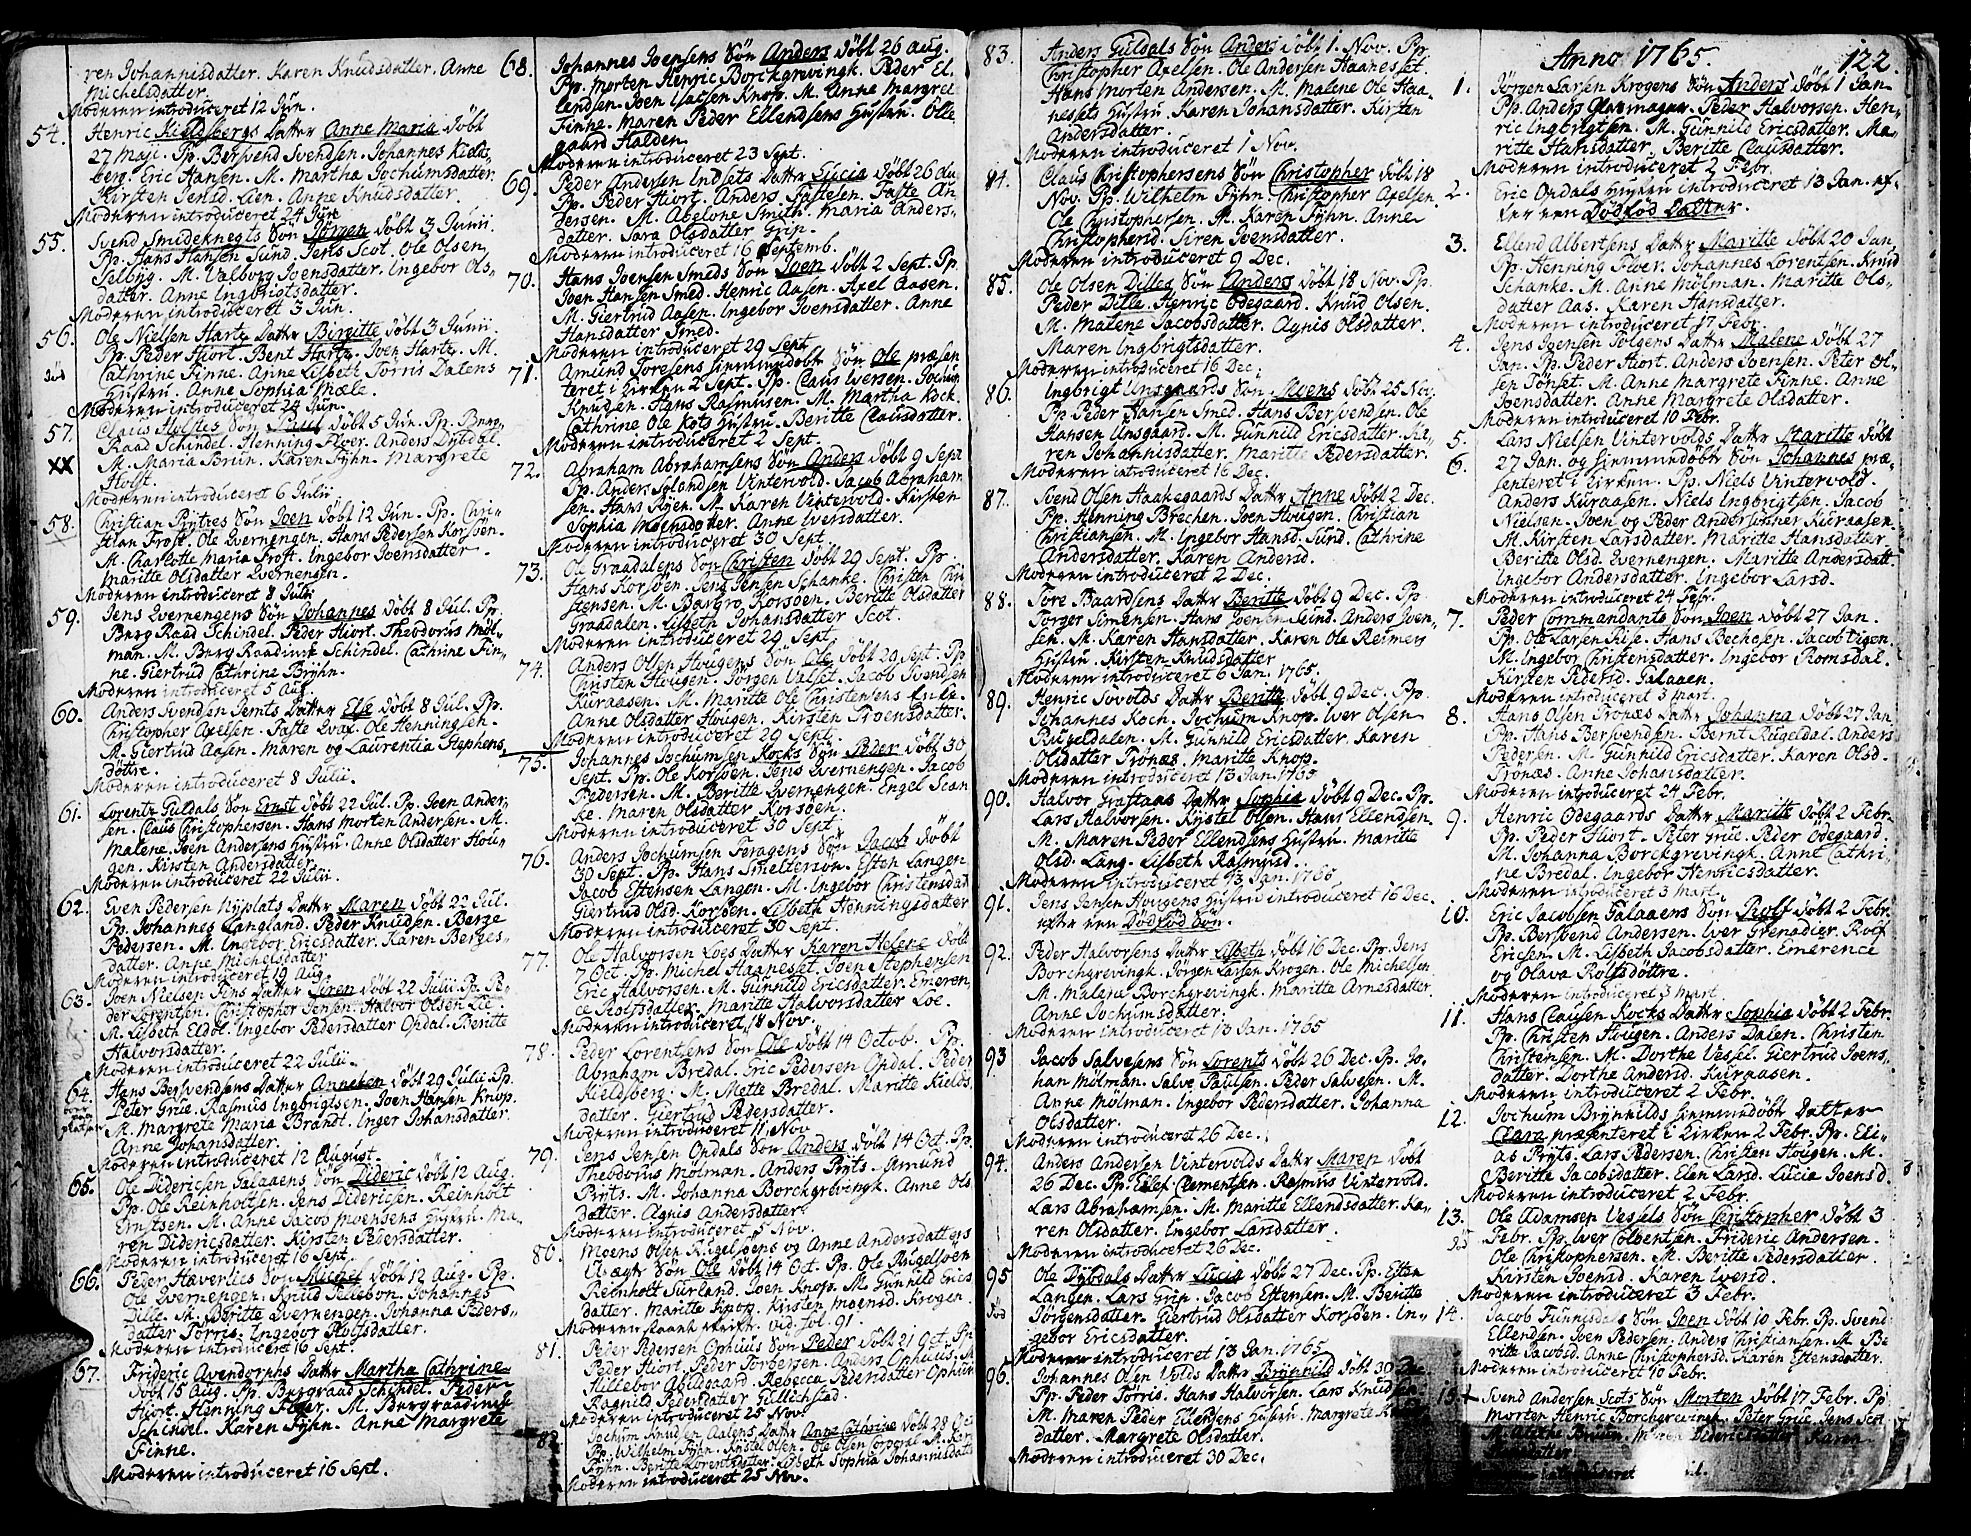 ren Johannisdatter. Karen Knudsdatter. Anne
Michelsdatter.
Moderen introduceret 12 Jun.
54. Henric Kieldsbergs Datter Anne Maria döbt
27 Maji. Pp. Bersvend Svendsen. Johannes Kields-
berg. Eric Hansen. M. Martha Jochumsdatter.
Kirsten Jensd. Lien. Anne Knudsdatter.
Moderen introduceret 24 Jun.
55. Svend Smideknegts Sön Jörgen döbt 3 Junii.
Pp. Hans Hansen Sund. Jens Scot. Ole Olsen
Selbyg. M. Valborg Joensdatter. Ingebor Ols-
datter. Anne Ingbrigtsdatter.
Moderen introduceret 3 Jun.
56. Ole Nielsen Hartz Datter Birgitte döbt 3 Junii.
Pp. Peder Hiort. Bent Hartz. Joen Hartz. M.
Cathrine Finne. Anne Lisbeth Torris Datens
Hustru. Anne Sophia Mæle.
Moderen introduceret 24 Jun.
57. Claus Holstes Sön Paul döbt 5 Jun. Pp. Berg-
XX Raad Schindel. Henning Floer. Anders Dybdal.
M. Maria Brun. Karen Fyhn. Margrete
Holst.
Moderen introduceret 6 Julii.
58. Christian Prytzes Sön Joen döbt 12 Jun. Pp. Chri-
stian Frost. Ole Qvernengen. Hans Pedersen Korsöen.
M. Charlotte Maria Frost. Ingebor Joensdatter.
Maritte Olsdatter Qvernengen.
Moderen introduceret 8 Julii
59. Jens Qvernengens Sön Johannes döbt 8 Jul. Pp.
Berg Raad Schindel. Peder Hiort. Theodorus Möl-
man. M. Berg Raadinde Schindel. Cathrine Fin-
ne. Giertrud Cathrine Bryhn.
Moderen introduceret 5 Aug.
60. Anders Svendsen Jemts Datter Else döbt 8 Jul. Pp.
Christopher Axelsen. Faste Qvas. Ole Henningsen.
M. Giertrud Aasen. Maren og Laurentia Stephens
döttre.
Moderen introduceret 8 Julii.
61. Lorentz Guldals Sön Ernst döbt 22 Jul. Pp. Joen Ander-
sen. Claus Christophersen. Hans Morten Andersen. M.
Malene Joen Andersens Hustru. Anne Olsdatter Hou-
gen. Kirsten Andersdatter.
Moderen introduceret 22 Julii.
62. Even Pedersen Nyplats Datter Maren döbt 22 Jul.
Pp. Johannes Langland. Peder Knudsen. Berge
Pedersen. M. Ingebor Ericsdatter. Karen Berges-
datter. Anne Michelsdatter
Moderen introduceret 19 Aug.
63. Joen Nielsen Fins Datter Siren döbt 22 Julii. Pp. Pe-
der Lorentsen. Christopher Jensen. Halvor Olsen Lie.
M. Lisbeth Eldol. Ingebor Pedersdatter Opdal. Beritte
Halvorsdatter.
Moderen introduceret 22 Julii.
64. Hans Bersvendsens Datter Anneken döbt 29 Julii. Pp.
Peter Grue. Rasmus Ingbrigtsen. Joen Hansen Knop.
M. Margrete Maria Brandt. Inger Johansdatter.
Anne Johansdatter.
Moderen introduceret 12 August.
65. Ole Didericsen Galaaens Sön Dideric döbt 12 Aug.
Pp. Ole Reinholtsen. Jens Didericsen. Reinholt
Ernstsen. M. Anne Jacob Moensens Hustru. Ma-
ren Didericsdatter. Kirsten Pedersdatter.
Moderen introduceret 16 Sept.
66. Peder Haverlies Sön Michel döbt 12 Aug. Pp.
Ole Qvernengen. Knud Tellebon. Johannes
Dille. M. Beritte Qvernengen. Johanna Peders-
datter Torris. Ingebor Holstsdatter.
Moderen introduceret 16 Sept.
67. Frideric Avendorphs Datter Martha Cathrine
döbt 15 Aug. Pp. Bergraad Schindel. Peder
Hiort. Henning Floer. M. Bergraadinde
Schindel. Karen Fyhn. Anne Margrete
Finne.
Moderen introduceret 16 Sept.
68. Johannes Joensens Sön Anders döbt 26 Aug.
Pp. Morten Henric Borckgrevingk. Peder El-
lendsen. Joen Isacsen Knop. M. Anne Margret
Finne. Maren Peder Ellendsens Hustru. Olle
gaard Halden.
Moderen introduceret 23 Sept.
69. Peder Andersen Indsets Datter Lucia döbt 26 Au
Pp. Peder Hiort. Anders Fastesen. Faste An
dersen. M. Abelone Smith. Maria Anders-
datter. Sara Olsdatter Grip.
Moderen introduceret 16 Septemb.
70. Hans Joensen Smeds Sön Joen döbt 2 Sept. Pp.
Joen Hansen Smed. Henric Aasen. Axel Aasen.
M. Giertrud Aasen. Ingebor Joensdatter. Anne
Hansdatter Smed.
Moderen introduceret 29 Sept
71. Amund Toresens hiemmedöbt Sön Ole præsen
teret i Kirken 2 Sept. Pp. Claus Iversen. Jochum
Knudsen. Hans Rasmusen. M. Martha Kock.
Cathrine Ole Kots Hustru. Beritte Clausdatter.
Moderen introduceret 2 Sept.
72. Abraham Abrahamsens Sön Anders döbt 9 Sept
Pp. Anders Solandsen Vintervold. Jacob Abraham
sen. Hans Ryen. M. Karen Vintervold. Kirsten
Sophia Moensdatter. Anne Iversdatter.
Moderen introduceret 30 Sept
73. Ole Graadalens Sön Christen döbt 29 Sept. Pp.
Hans Korsöen. Jens Jensen Schanke. Christen Chri
stensen. M. Bargro Korsöen. Beritte Olsdatter
Graadalen. Lisbeth Johansdatter Scot.
Moderen introduceret 29 Sept.
74. Anders Olsen Hougens Sön Ole döbt 29 Sept. Pp
Christen Hougen. Jörgen Valset. Jacob Svendsen
Kuraasen. M. Maritte Ole Christensens Enke.
Anne Olsdatter Hougen. Kirsten Troensdatter.
Moderen introduceret 29 Sept.
75. Johannes Jochumsen Kocks Sön Peder döbt 30
Sept. Pp. Ole Korsöen. Jens Qvernengen. Jacob
Pedersen. M. Beritte Qvernengen. Engel Scan
ke. Maren Olsdatter Korsöen.
Moderen introduceret 30 Sept.
76. Anders Jochumsen Feragens Sön Jacob döbt
30 Sept. Pp. Hans Smelterson. Esten Langen.
Jacob Estensen Langen. M. Ingebor Christensdat
Giertrud Olsd. Korsöen. Lisbeth Henningsdatter
Moderen introduceret 30 Sept.
77. Ole Halvorsen Loes Datter Karen Helene döbt
7 Oct. Pp. Michel Haaneset. Joen Stephensen
Eric Halvorsen. M. Gunnild Ericsdatter. Emeren
ce Rolfsdatter. Maritte Halvorsdatter Loe.
Moderen introduceret 18 Nov.
78. Peder Lorentsens Sön Ole döbt 14 Octob. Pp.
Abraham Bredal. Eric Pedersen Opdal. Peder
Kieldsberg. M. Mette Bredal. Maritte Kields
datter. Giertrud Pedersdatter.
Moderen introduceret 11 Nov
79. Jens Jensen Opdals Sön Anders döbt 14 Oct. Pp.
Theodorus Mölman. Anders Pryts. Amund
Pryts. M. Johanna Borckgrevingk. Anne Ols
datter. Agnis Andersdatter.
Moderen introduceret 5 Nov.
80. Moens Olsen Rugelsöens og Anne Andersdatters
Uægte Sön Ole döbt 14 Oct. Pp. Ole Rugelsöen
Reinholt Surland. Joen Knop. M. Gunnild Erics
datter. Maritte Knop. Kirsten Moensd. Krogen
Moderen staaet skrift. vid. fol. 91.
81. Peder Pedersen Ophuus Sön Peder döbt 21 Oct. Pp
Peder Hiort. Peder Torbersen. Anders Ophuus. M
Hillebor Abildgaard. Rebecca Pedersdatter Ophuus
Ragnild Pedersdatter Gullichstad.
Moderen introduceret 25 Nov
82. Jochum Knudsen Aalens Datter Anne Cathrine döbt 28 Oct
Pp. Wilhelm Fyhn. Kristel Olsen. Ole Olsen Corporal. M. Karen
Fyhn. Beritte Lorentsdatter. Lisbeth Sophia Johannisdatt
Moderen introduceret 25 Nov.
83. Anders Guldals Sön Anders döbt 1. Nov. Pp.
Christopher Axelsen. Ole Andersen Haanesset.
Hans Morten Andersen. M. Malene Ole Haa-
nessets Hustru. Karen Johansdatter. Kirsten
Andersdatter.
Moderen introduceret 1 Nov.
84. Claus Christophersens Sön Christopher döbt 18
Nov. Pp. Wilhelm Fyhn. Christopher Axelsen.
Ole Christophersen. M. Karen Fyhn. Anne
Christophersd. Siren Joensdatter.
Moderen introduceret 9 Dec.
85. Ole Olsen Dilles Sön Anders döbt 18 Nov. Pp.
Peder Dille. Henric Ödegaard. Knud Olsen.
M. Malene Jacobsdatter. Agnis Olsdatter.
Maren Ingbrigtsdatter.
Moderen introduceret 16 Dec.
86. Ingbrigt Unsgaards Sön Moens döbt 25 Nov.
Pp. Peder Hansen Smed. Hans Bersvendsen. Ole
Hansen Unsgaard. M. Gunnild Ericsdatter. Ka-
ren Johannisdatter. Maritte Pedersdatter.
Moderen introduceret 16 Dec.
87. Svend Olsen Haakegaards Datter Anne döbt 2 Dec.
Pp. Henning Brechen. Joen Hougen. Christian
Christiansen. M. Ingebor Hansd. Sund. Cathrine
Andersdatter. Karen Andersd.
Moderen introduceret 2 Dec.
88. Tore Baardsens Datter Beritte döbt 9 Dec. Pp
Torger Simensen. Hans Joensen Sund. Anders Joen-
sen. M. Karen Hansdatter. Karen Ole Reimers
Hustru. Kirsten Knudsdatter
Moderen introduceret 6 Jan. 1765.
89. Henric Sovolds Datter Beritte döbt 9 Dec. Pp.
Johannes Koch. Jochum Knop. Iver Olsen
Rugeldalen. M. Gunnild Ericsdatter. Karen
Olsdatter Tronæs. Maritte Knop.
Moderen introduceret 13 Jan. 1765
90. Halvor Graftaas Datter Sophia döbt 9 Dec. Pp.
Lars Halvorsen. Kristel Olsen. Hans Ellendsen.
M. Maren Peder Ellendsens Hustru. Maritte
Olsd. Lang. Lisbeth Rasmusd.
Moderen introduceret 13 Jan. 1765
91. Jens Jensen Hougens Hustru introduceret 16 Dec.
efter een Dödföd Sön.
92. Peder Halvorsens Datter Lisbeth döbt 16 Dec. Pp. Jens
Borchgrevingk. Jörgen Larsen Krogen. Ole Michelsen
M. Malene Borchgrevingk. Maritte Arnesdatter
Anne Jochumsdatter.
Moderen introduceret 13 Jan. 1765
93 Jacob Salvesens Sön Lorents döbt 26 Dec. Pp. Jo-
han Mölman. Salve Paulsen. Peder Salvesen. M.
Anne Mölman. Ingebor Pedersdatter. Johanna
Olsdatter.
Moderen introduceret 26 Dec.
94. Anders Andersen Vintervolds Datter Maren döbt
26 Dec. Pp. Eilef Clementsen. Rasmus Vintervold.
Lars Abrahamsen. M. Maritte Ellendsdatter. Ka-
ren Olsdatter. Ingebor Larsdatter
Moderen introduceret 26 Dec.
95 Ole Dybdals Datter Lucia döbt 27 Dec. Pp. Esten
Langen. Lars Grip. Jacob Estensen. M. Beritte
död Jörgensdatter. Giertrud Olsdatter Korsöen. In-
gebor Ericsdatter.
Moderen introduceret 13 Jan. 1765
96. Johannes Olsen Volds Datter Brynnild döbt 30 Dec.
Pp. Peder Torris. Hans Halvorsen. Lars Knudsen.
M. Maren Peder Ellensens Hustru. Margrete
datter. Margrete Olsdatter.
Moderen introduceret 30 Dec.
Anno 1765. 122.
1. Jörgen Larsen Krogens Sön Anders döbt 1 Jan
Pp. Anders Glasmager. Peder Halvorsen. Hen-
ric Ingbrigtsen. M. Gunnild Ericsdatter. Ma-
ritte Hansdatter. Beritte Clausdatter.
Moderen introduceret 2 Febr.
2. Eric Opdals Hustru introduceret 13 Jan. ef-
ter een Dödföd Datter.
3. Ellend Albertsens Datter Maritte döbt 20 Jan.
Pp. Henning Floer. Johannes Lorentsen. Knud
Schanke. M. Anne Mölman. Maritte Ols-
datter Aas. Karen Hansdatter.
Moderen introduceret 17 Febr.
4. Jens Joensen Solgens Datter Malene döbt 27
Jan. Pp. Peder Hiort. Anders Joensen. Peter Ol-
sen Tönset. M. Anne Margrete Finne. Anne
Joensdatter. Anne Margrete Olsdatter.
Moderen introduceret 10 Febr.
5. Lars Nielsen Vintervolds Datter Maritte döbt
6. 27 Jan. og hiemmedöbt Sön Johannes præ-
senteret i Kirken. Pp. Niels Vintervold.
Anders Kuraasen. Niels Ingbrigtsen. Jacob
Nielsen. Joen og Peder Andersönner Kuraasen.
M. Kirsten Larsdatter. Maritte Hansdatter
Beritte Olsd. Qvernengen. Maritte Andersdatt.
Ingebor Andersdatter. Ingebor Larsd.
Moderen introduceret 24 Febr.
7. Peder Commandants Sön Joen döbt 27 Jan.
Pp. Ole Larsen Riise. Hans Bechosen. Jacob Eigen.
M. Ingebor Christensdatter. Ingebor Romsdal.
Kirsten Pedersd. Galaaen.
Moderen introduceret 3 Mart.
8. Hans Olsen Tronæs Datter Johanna döbt 27 Jan
Pp. Hans Bersvendsen. Bernt Rugeldal. Anders
Pedersen. M. Gunnild Ericsdatter. Karen Olsd.
Tronæs. Anne Johansdatter.
Moderen introduceret 24 Febr.
9. Henric Ödegaards Datter Maritte döbt 2 Febr.
Pp. Peder Hiort. Peter Grue. Peder Ödegaard.
M. Johanna Borckgrevingk. Anne Cathri-
ne Bredal. Ingebor Henricsdatter.
Moderen introduceret 3 Mart.
10. Eric Jacobsen Galaaens Sön Rolf döbt 2 Febr.
Pp. Bersvend Andersen. Iver Grenadier. Rolf
Ericsen. M. Lisbeth Jacobsdatter. Emerence
og Olava Rolfsdöttre.
Moderen introduceret 3 Mart.
11. Hans Clausen Kocks Datter Sophia döbt 2 Febr.
Pp. Christen Hougen. Anders Dalen. Christen
Christensen. M. Dorthe Vessel. Giertrud Joens-
datter. Dorthe Andersd. Kuraasen.
Moderen introduceret 2 Febr.
12. Jochum Brynnilds hiemmedöbt Datter
Clara præsenteret i Kirken 2 Febr. Pp. Eli-
as Pryts. Lars Pedersen. Christen Hougen. M.
Beritte Jacobsdatter. Elen Larsd. Lucia Joensd.
Moderen introduceret 2 Febr.
13. Ole Adamsen Vessels Sön Christopher döbt 3
Febr. Pp. Iver Colbentsen. Frideric Andersen.
Ole Christophersen. M. Beritte Pedersdatter
Kirsten Joensd. Karen Iversd.
Moderen introduceret 3 Febr.
14. Jacob Funnisdals Sön Joen döbt 10 Febr. Pp. Svend
Ellendsen. Joen Pedersen. Anders Christiansen. M. Be-
ritte Jacobsd. Anne Christophersd. Karen Estensdatter.
Moderen introduceret 10 Febr.
15. + Svend Andersen Scots Sön Morten döbt 17 Febr. Pp
Morten Henric Borchgrevingk. Peter Grue. Jens Scot
M. Alethe Bruun. Maren Didericsdatter. Karen
introduceret